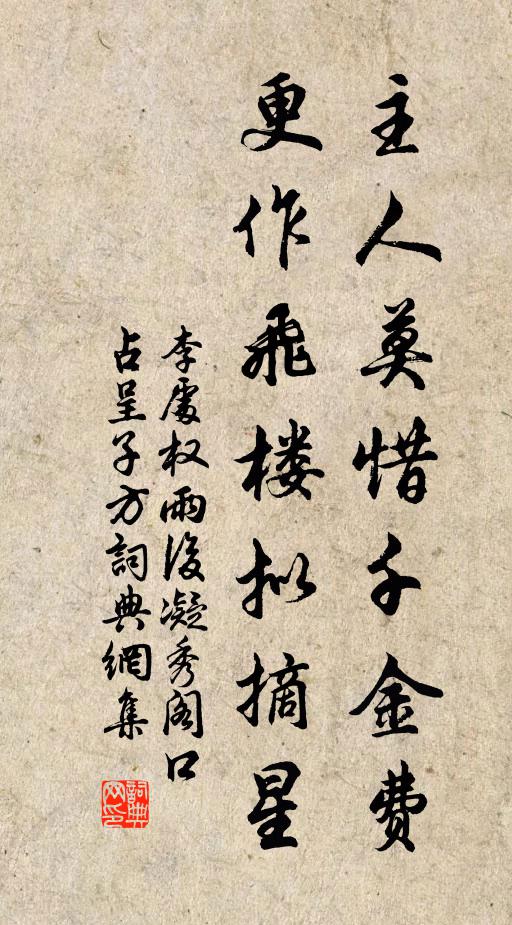 主人莫惜千金費
更作飛楼拟摘星
李處权雨後凝秀阁口
占呈子方詞典網集
詞典网印